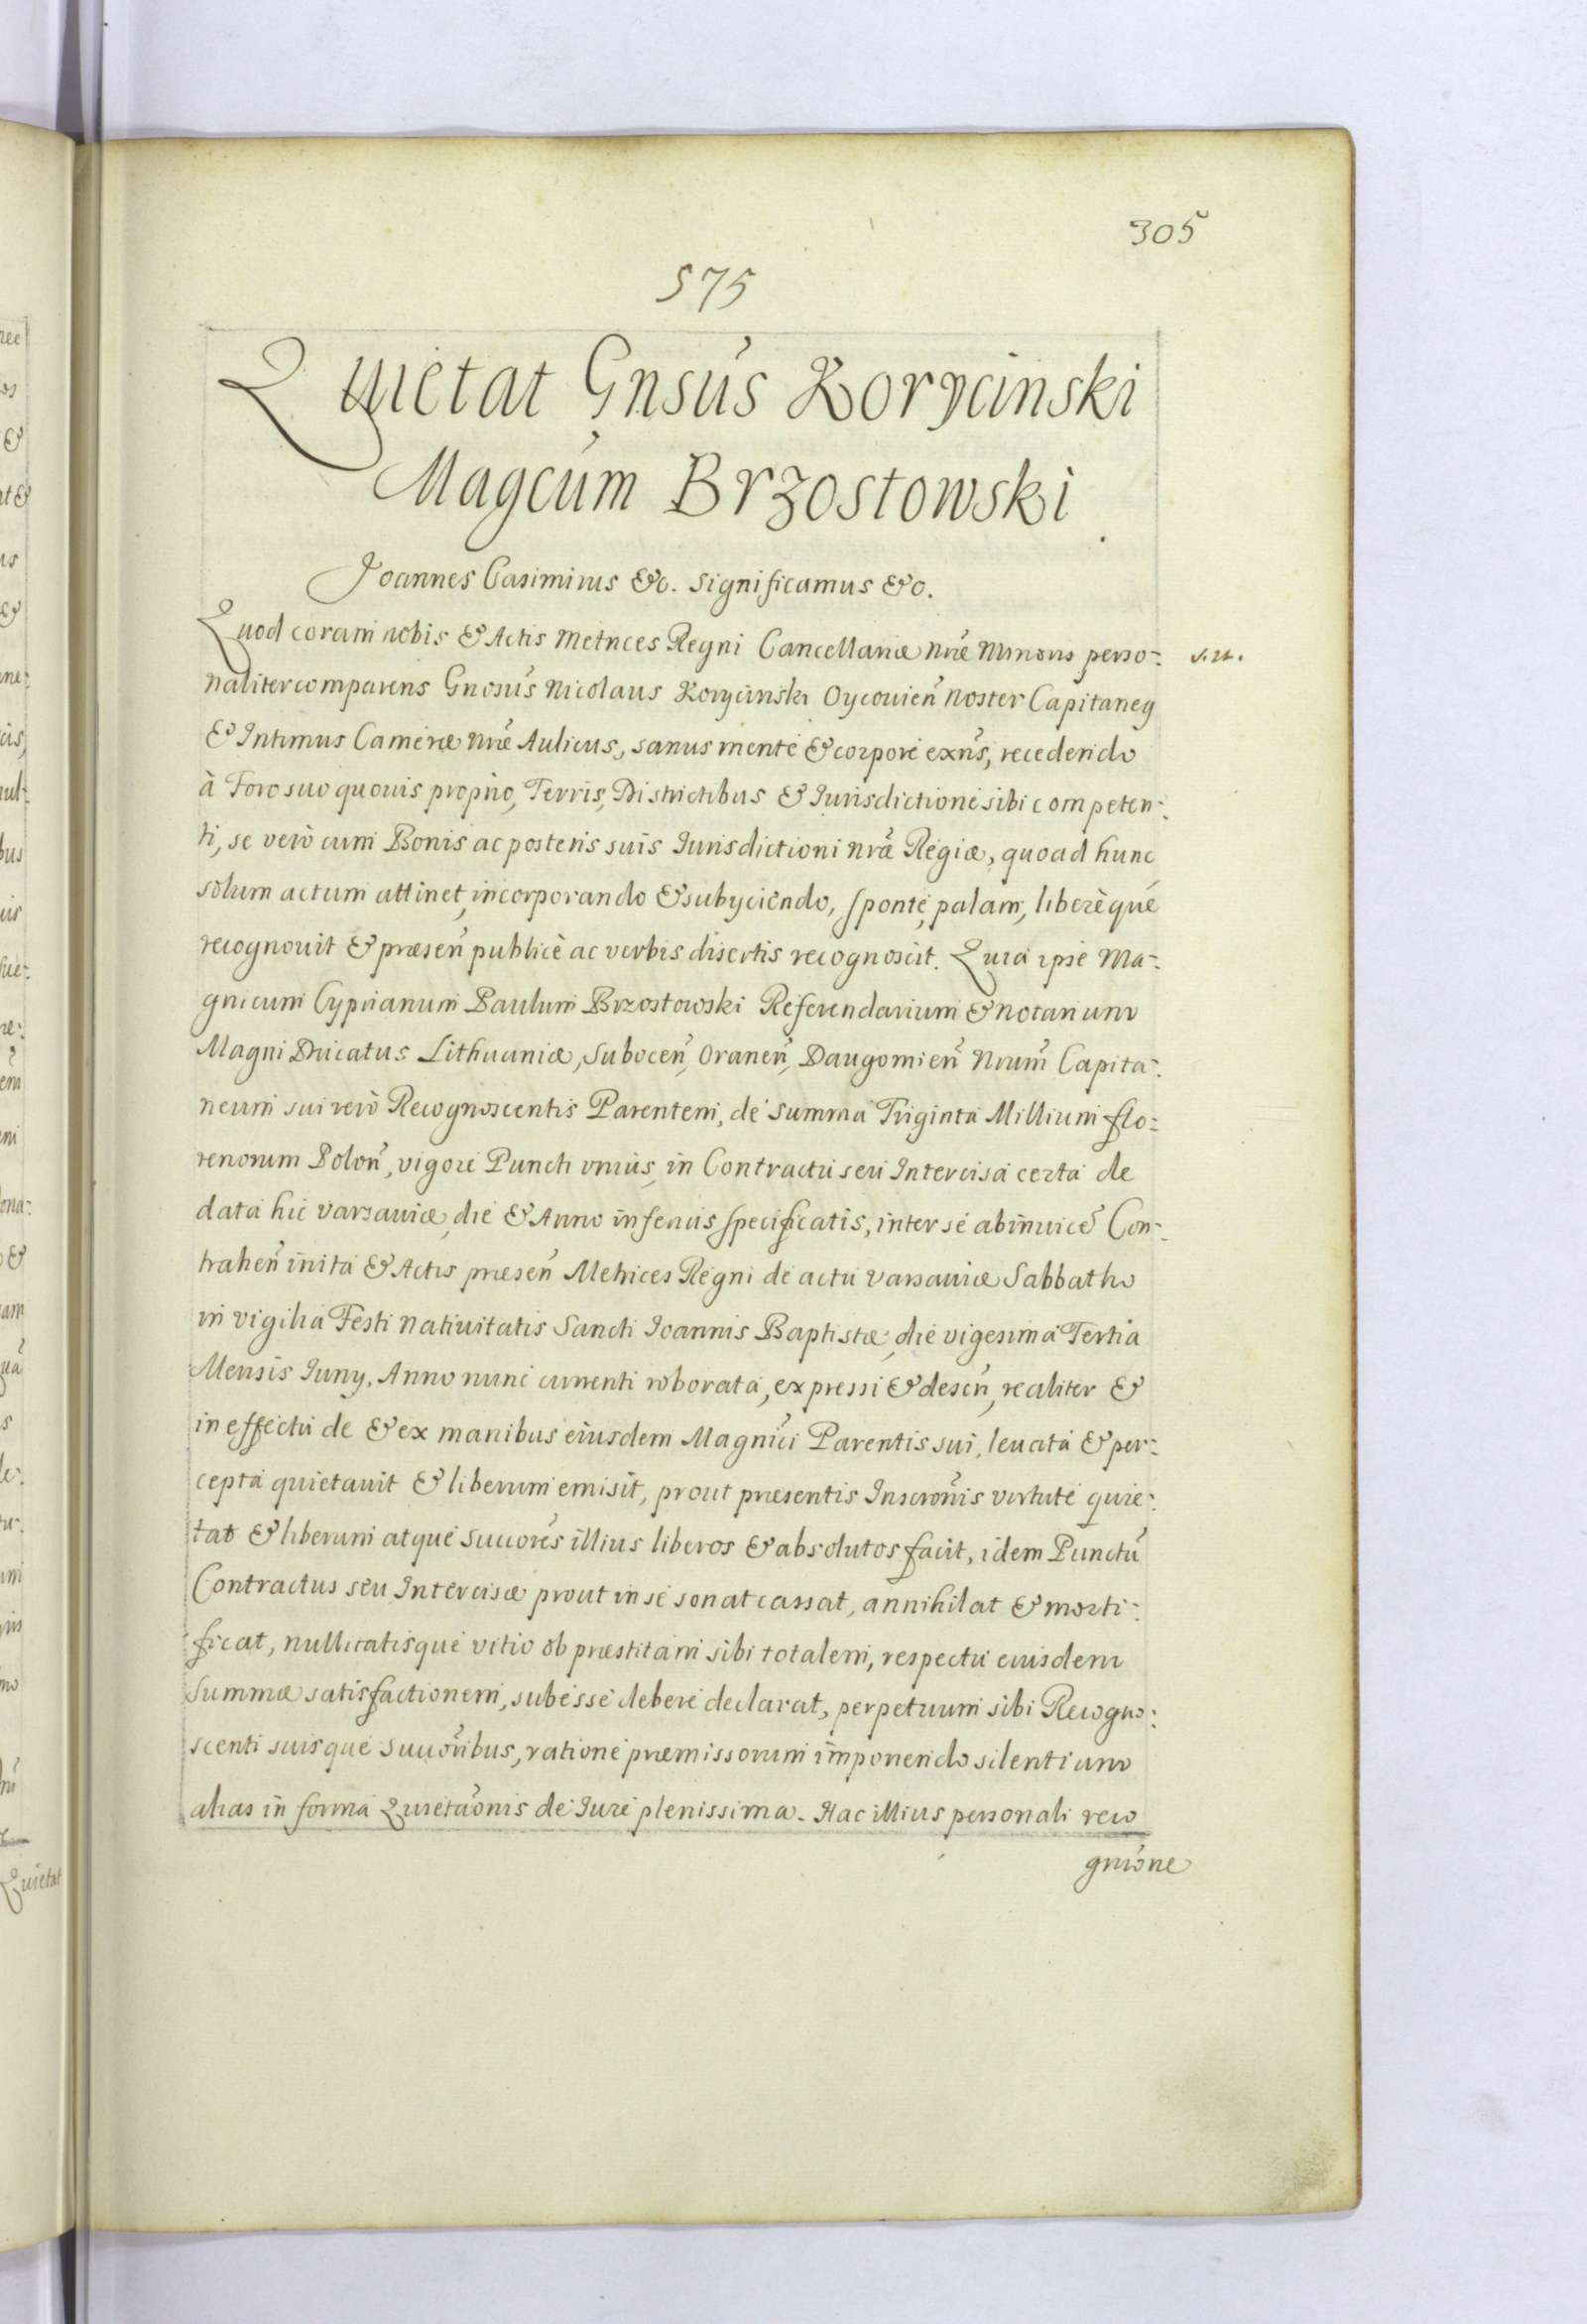 305
575
Quietat Gnsus Korycinski
Magcum Brzostowski
Joannes Casimirus &c. Significamus &c.
Quod coram nobis & Actis Metrices Regni Cancellariæ nr̃æ Minoris perso-
naliter comparens Gnosus Nicolaus Korycinski Oycouien̄ noster Capitaneg
& Intimus Cameræ nr̃æ Aulicus, sanus mente & corpore exñs, recedendo
à Foro suo quouis proprio, Terris, Districtibus & Jurisdictione sibi competen-
ti, se verò cum Bonis ac posteris suis Jurisdictioni nr̃æ Regiæ, quoad hunc
solum actum attinet, incorporando & subyciendo, sponte, palam, liberèque
recognouit & præsen̄ publicè ac verbis disertis recognoscit. Quia ipse Ma-
gnicum Cyprianum Paulum Brzostowski Referendarium & notarium
Magni Ducatus Lithuaniæ, Subocen̄, Oranen̄, Daugomien̄ Nrum̃ Capita-
neum sui verò Recognoscentis Parentem, de summa Triginta Millium flo-
renorum Polon̄, vigore Puncti vnius, in Contractu seu Intercisa certa de
data hic varsauiæ, die & Anno inferius specificatis, inter se abinuicẽ Con-
trahen̄ inita & Actis præsen̄ Metrices Regni de actu varsauiæ Sabbatho
in vigilia Festi natiuitatis Sancti Joannis Baptistæ, die vigesima Tertia
Mensis Juny, Anno nunc currenti roborata, expressi & descri̇, realiter &
in effectu de & ex manibus eiusdem Magnici Parentis sui, leuata & per-
cepta quietauit & liberum emisit, prout præsentis Inscrõnis virtute quie-
tat & liberum atque Succores illius liberos & absolutos facit, idem Punctũ
Contractus seu Intercisæ prout in se sonat cassat, annihilat & morti-
ficat, nullitatisque vitio ob præstitam sibi totalem, respectu eiusdem
Summæ satisfactionem, subesse debere declarat, perpetuum sibi Recogno-
scenti suisque Succoribus, ratione præmissorum imponendo silentium
alias in forma Quietaõnis de Jure plenissima. Hac illius personali reco
gniõne